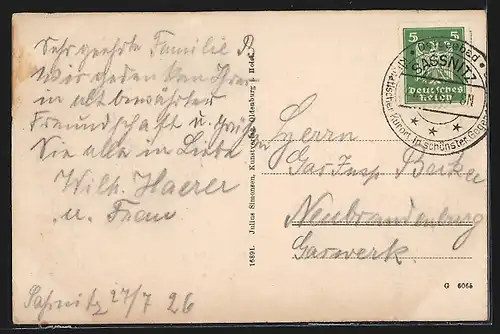 Sehr geehrte Familie B
Wir gaden von Ihrer
in altbewährter
Freundschaft u. Grüßen
Sie alle in Liebe
Wilh. Haerer
u. Frau
Saßnitz 27/7 26
16891. Julius Simonsen, Kunstverlag, Oldenburg i. Holst.
5 5
Deutsches
Reich
Ostseebad
SASSNITZ
Kurort in schönster
Herrn
Gas Insp. Becker
Neubrandenburg
Gaswerk
G 6065